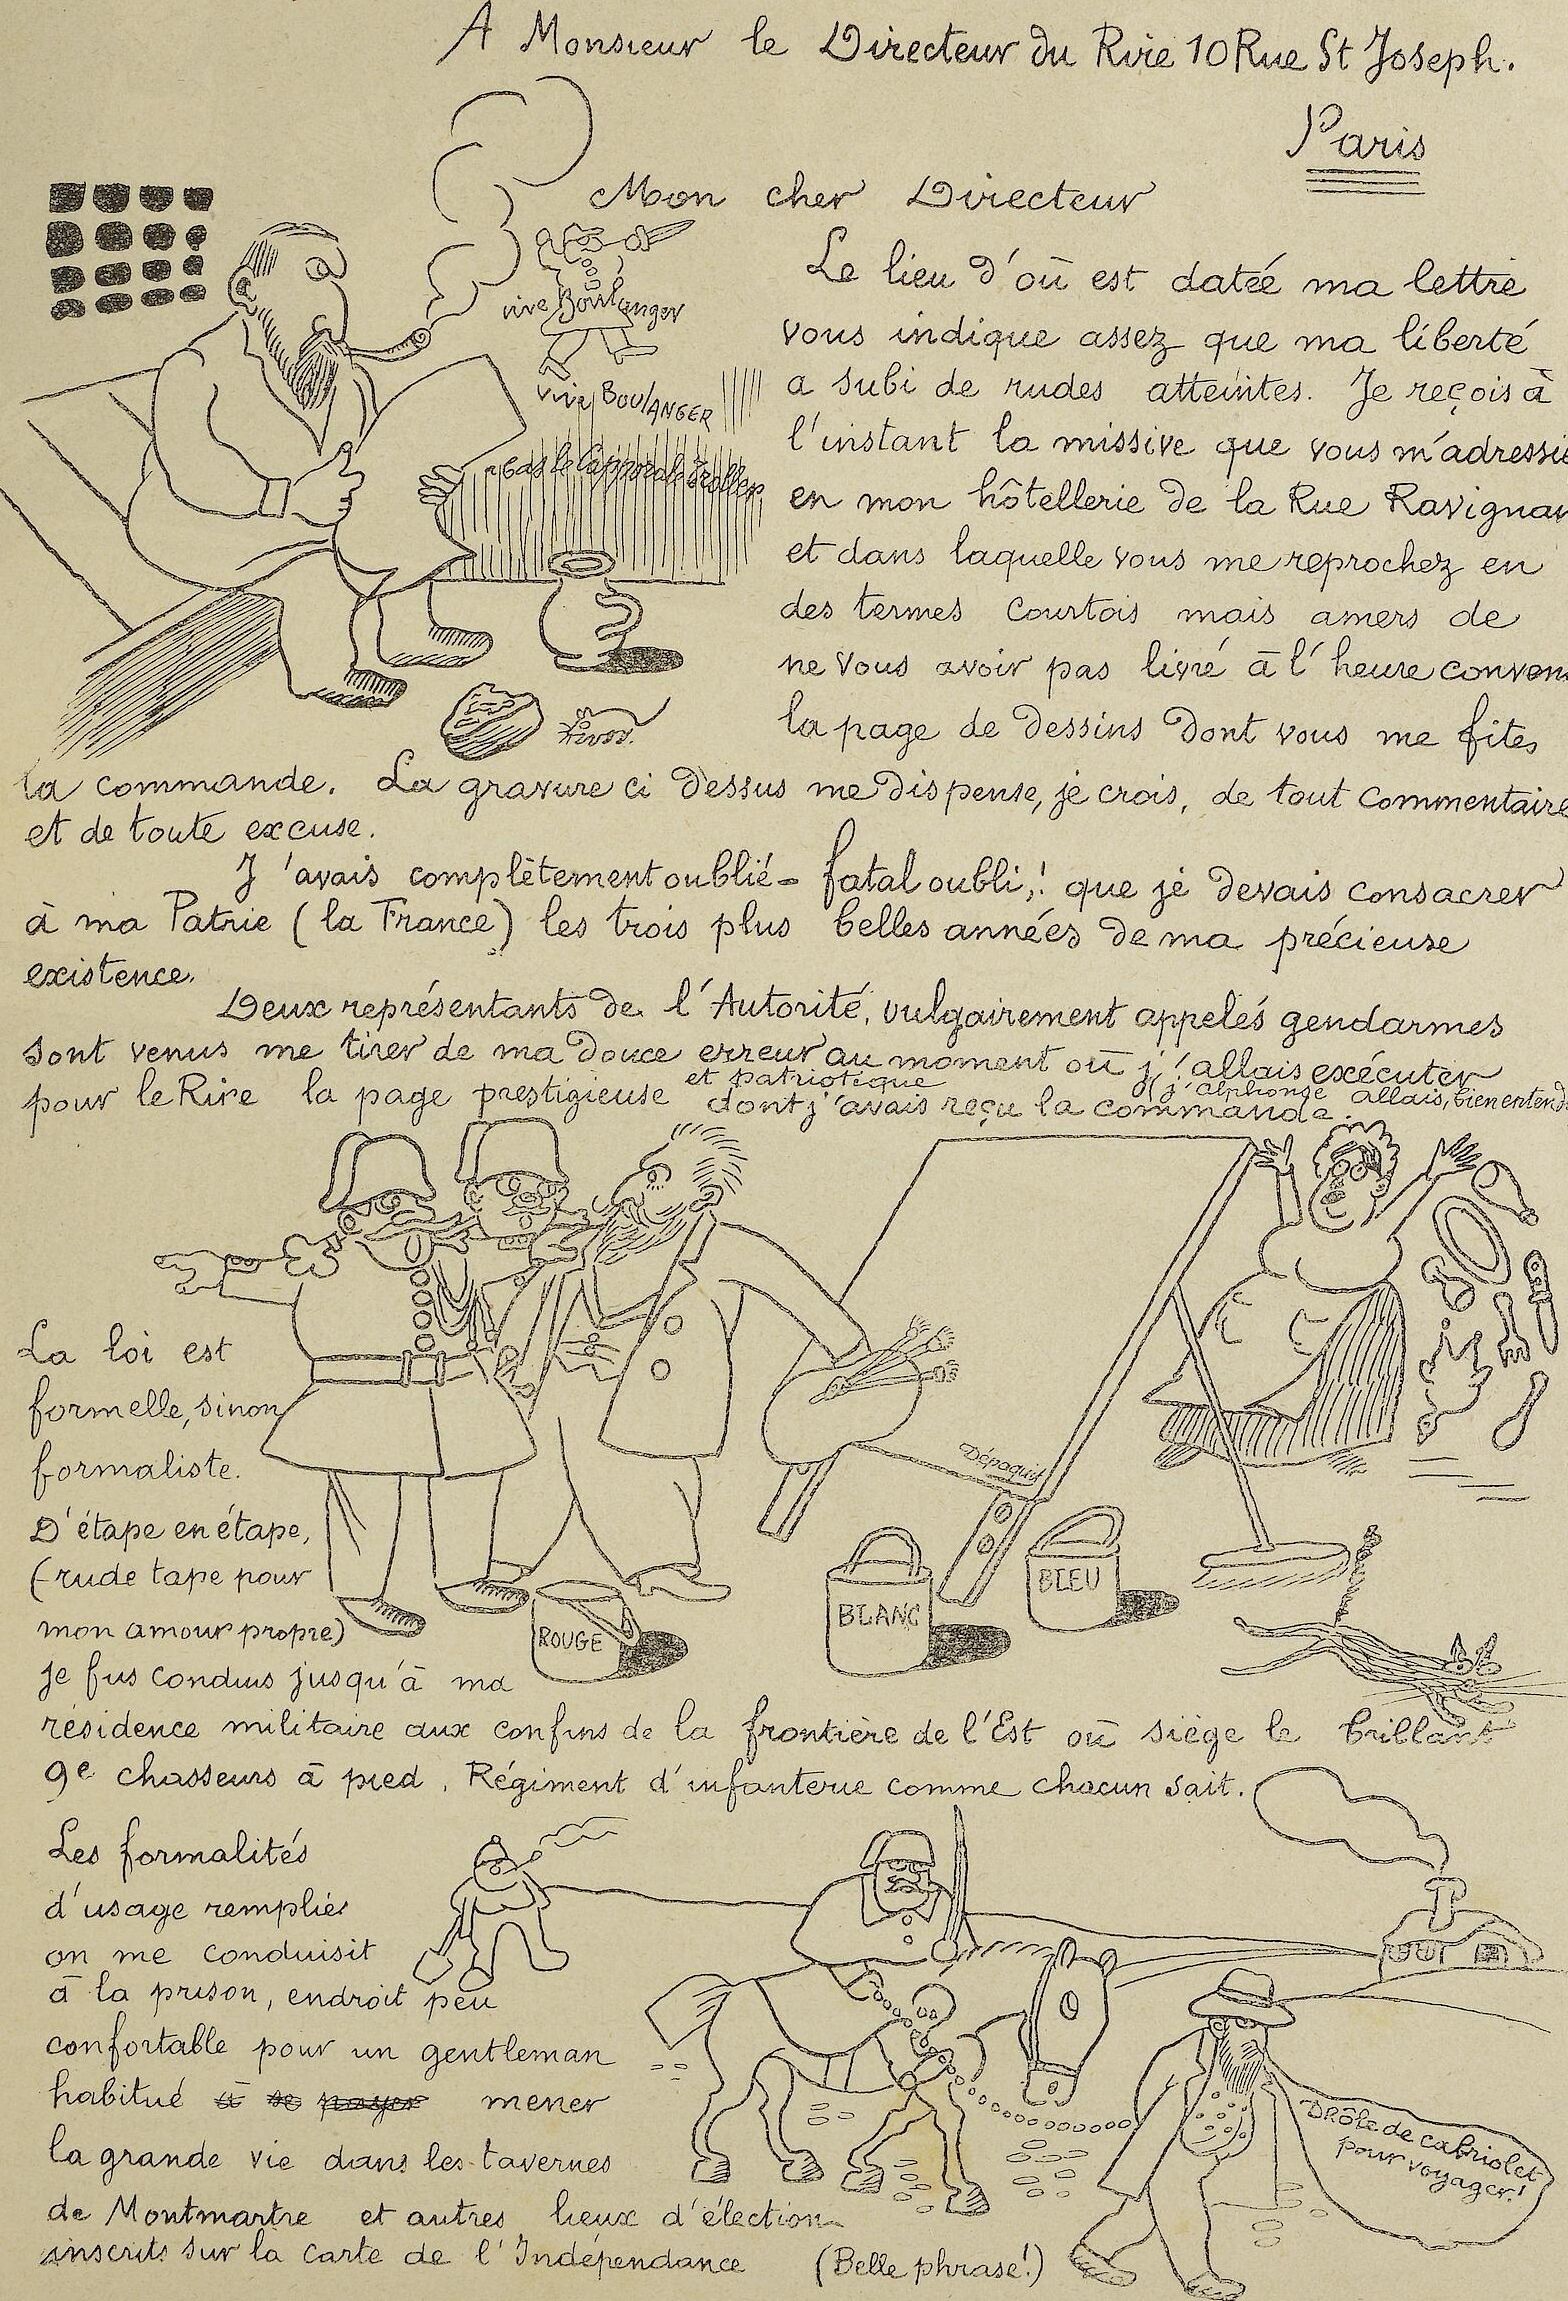 A Monsieur le Directeur du Rire 10 Rue St Joseph.
Paris
Mon cher Directeur
vive Boulanger
vive BOULANGER
Le lieu d'où est datée ma lettre
vous indique assez que ma liberté
a subi de rudes atteintes. Je reçois à
l'instant la missive que vous m'adressie
en mon hôtellerie de la Rue Ravignan
et dans laquelle vous me reprochez en
des termes courtois mais amers de
ne vous avoir pas livré à l'heure conven
la page de dessins dont vous me fites
la commande. La gravure ci dessus me dispense, je crois, de tout commentaire
et de toute excuse.
J'avais complètement oublié - fatal oubli,! que je devais consacrer
à ma Patrie (la France) les trois plus belles années de ma précieuse
existence.
Deux représentants de l'Autorité, vulgairement appelés gendarmes
sont venus me tirer de ma douce erreur au moment où j'allais exécuter
pour le Rire la page prestigieuse et patriotique dont j'avais reçu la commande.
(j'alphonse allais, bien entend
La loi est
formelle, sinon
formaliste.
D'étape en étape,
(rude tape pour
mon amour propre)
je fus conduis jusqu'à ma
résidence militaire aux confins de la frontière de l'Est où siège le brillant
9e chasseurs à pied. Régiment d'infanterie comme chacun sait.
Dépaquit
ROUGE
BLANC
BLEU
Les formalités
d'usage remplies
on me conduisit
à la prison, endroit peu
confortable pour un gentleman
habitué à se payer mener
la grande vie dans les tavernes
de Montmartre et autres lieux d'élection
inscrits sur la carte de l'Indépendance (Belle phrase!)
DRôle de cabriolet
pour voyager!